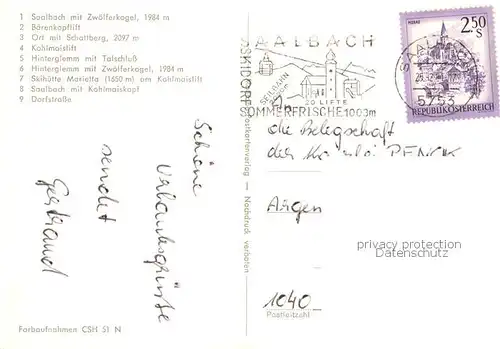 1 Saalbach mit Zwölferkogel, 1984 m
2 Bärenkopflift
3 Ort mit Schattberg, 2097 m
4 Kohlmaislift
5 Hinterglemm mit Talschluß
6 Hinterglemm mit Zwölferkogel, 1984 m
7 Skihütte Marietta (1650 m) am Kohlmaislift
8 Saalbach mit Kohlmaiskopf
9 Dorfstraße
Schöne
Urlaubsgrüße
sendet
Farbaufnahmen CSH 51 N
Postkartenverlag — Nachdruck verboten
SAALBACH
SKIDORF
SEILBAHN
20 LIFTE
SOMMERFRISCHE 1003m
5753
2.50
S
REPUBLIK ÖSTERREICH
die Belegschaft
der
1040
Postleitzahl
privacy protection
watermark